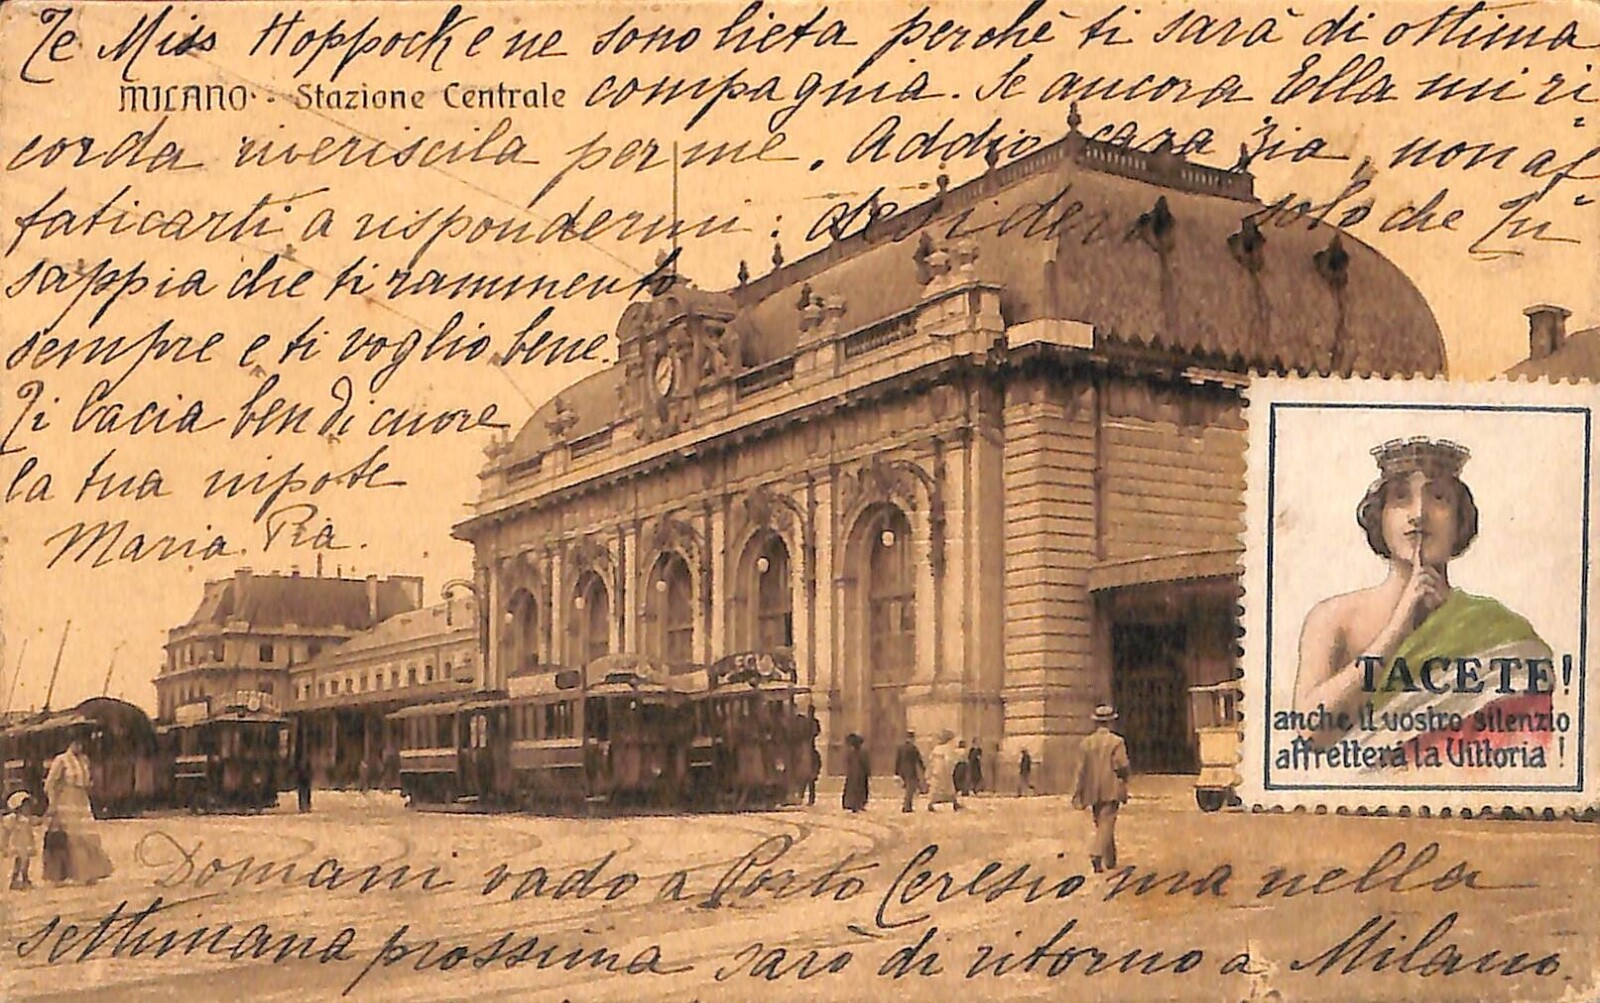 Te Miss Hoppock e ne sono lieta perchè ti sarà di ottima
MILANO - Stazione Centrale
compagnia. Se ancora Ella mi ri
corda riveriscila per me. Addio cara Zia, non af
faticarti a rispondermi: desidero solo che Tu
sappia che ti rammento
sempre e ti voglio bene.
Ti bacia ben di cuore
la tua nipote
Maria Pia.
TACETE!
anche il vostro silenzio
affretterà la Vittoria!
Domani vado a Porto Ceresio ma nella
settimana prossima sarò di ritorno a Milano.